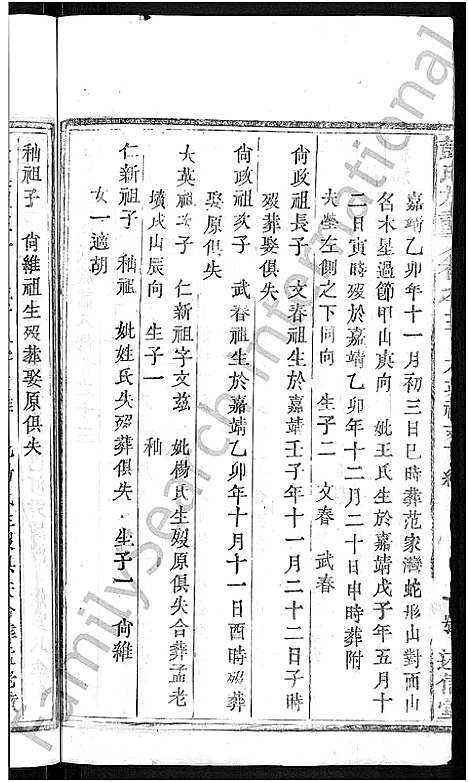 嘉靖乙卯年十一月初三日巳時葬范家灣蛇形山對面山
名木星過節甲山庚向 妣王氏生於嘉靖戊子年五月十
二日寅時歿於嘉靖乙卯年十二月二十日申時葬附
夫塋左側之下同向 生子二 文春 武春
尙政祖長子 文春祖生於嘉靖壬子年十一月二十二日子時
歿葬娶原俱失
尙政祖次子 武春祖生於嘉靖乙卯年十月十一日酉時歿葬
娶原俱失
大英祖次子 仁新祖字文茲 妣楊氏生歿原俱失合葬孟老
墳戌山辰向 生子一 秈
仁新祖子 秈祖 妣姓氏失歿葬俱失 生子一 尙維
女一適胡
秈祖子 尙維祖生歿葬娶原俱失
FamilySearch International